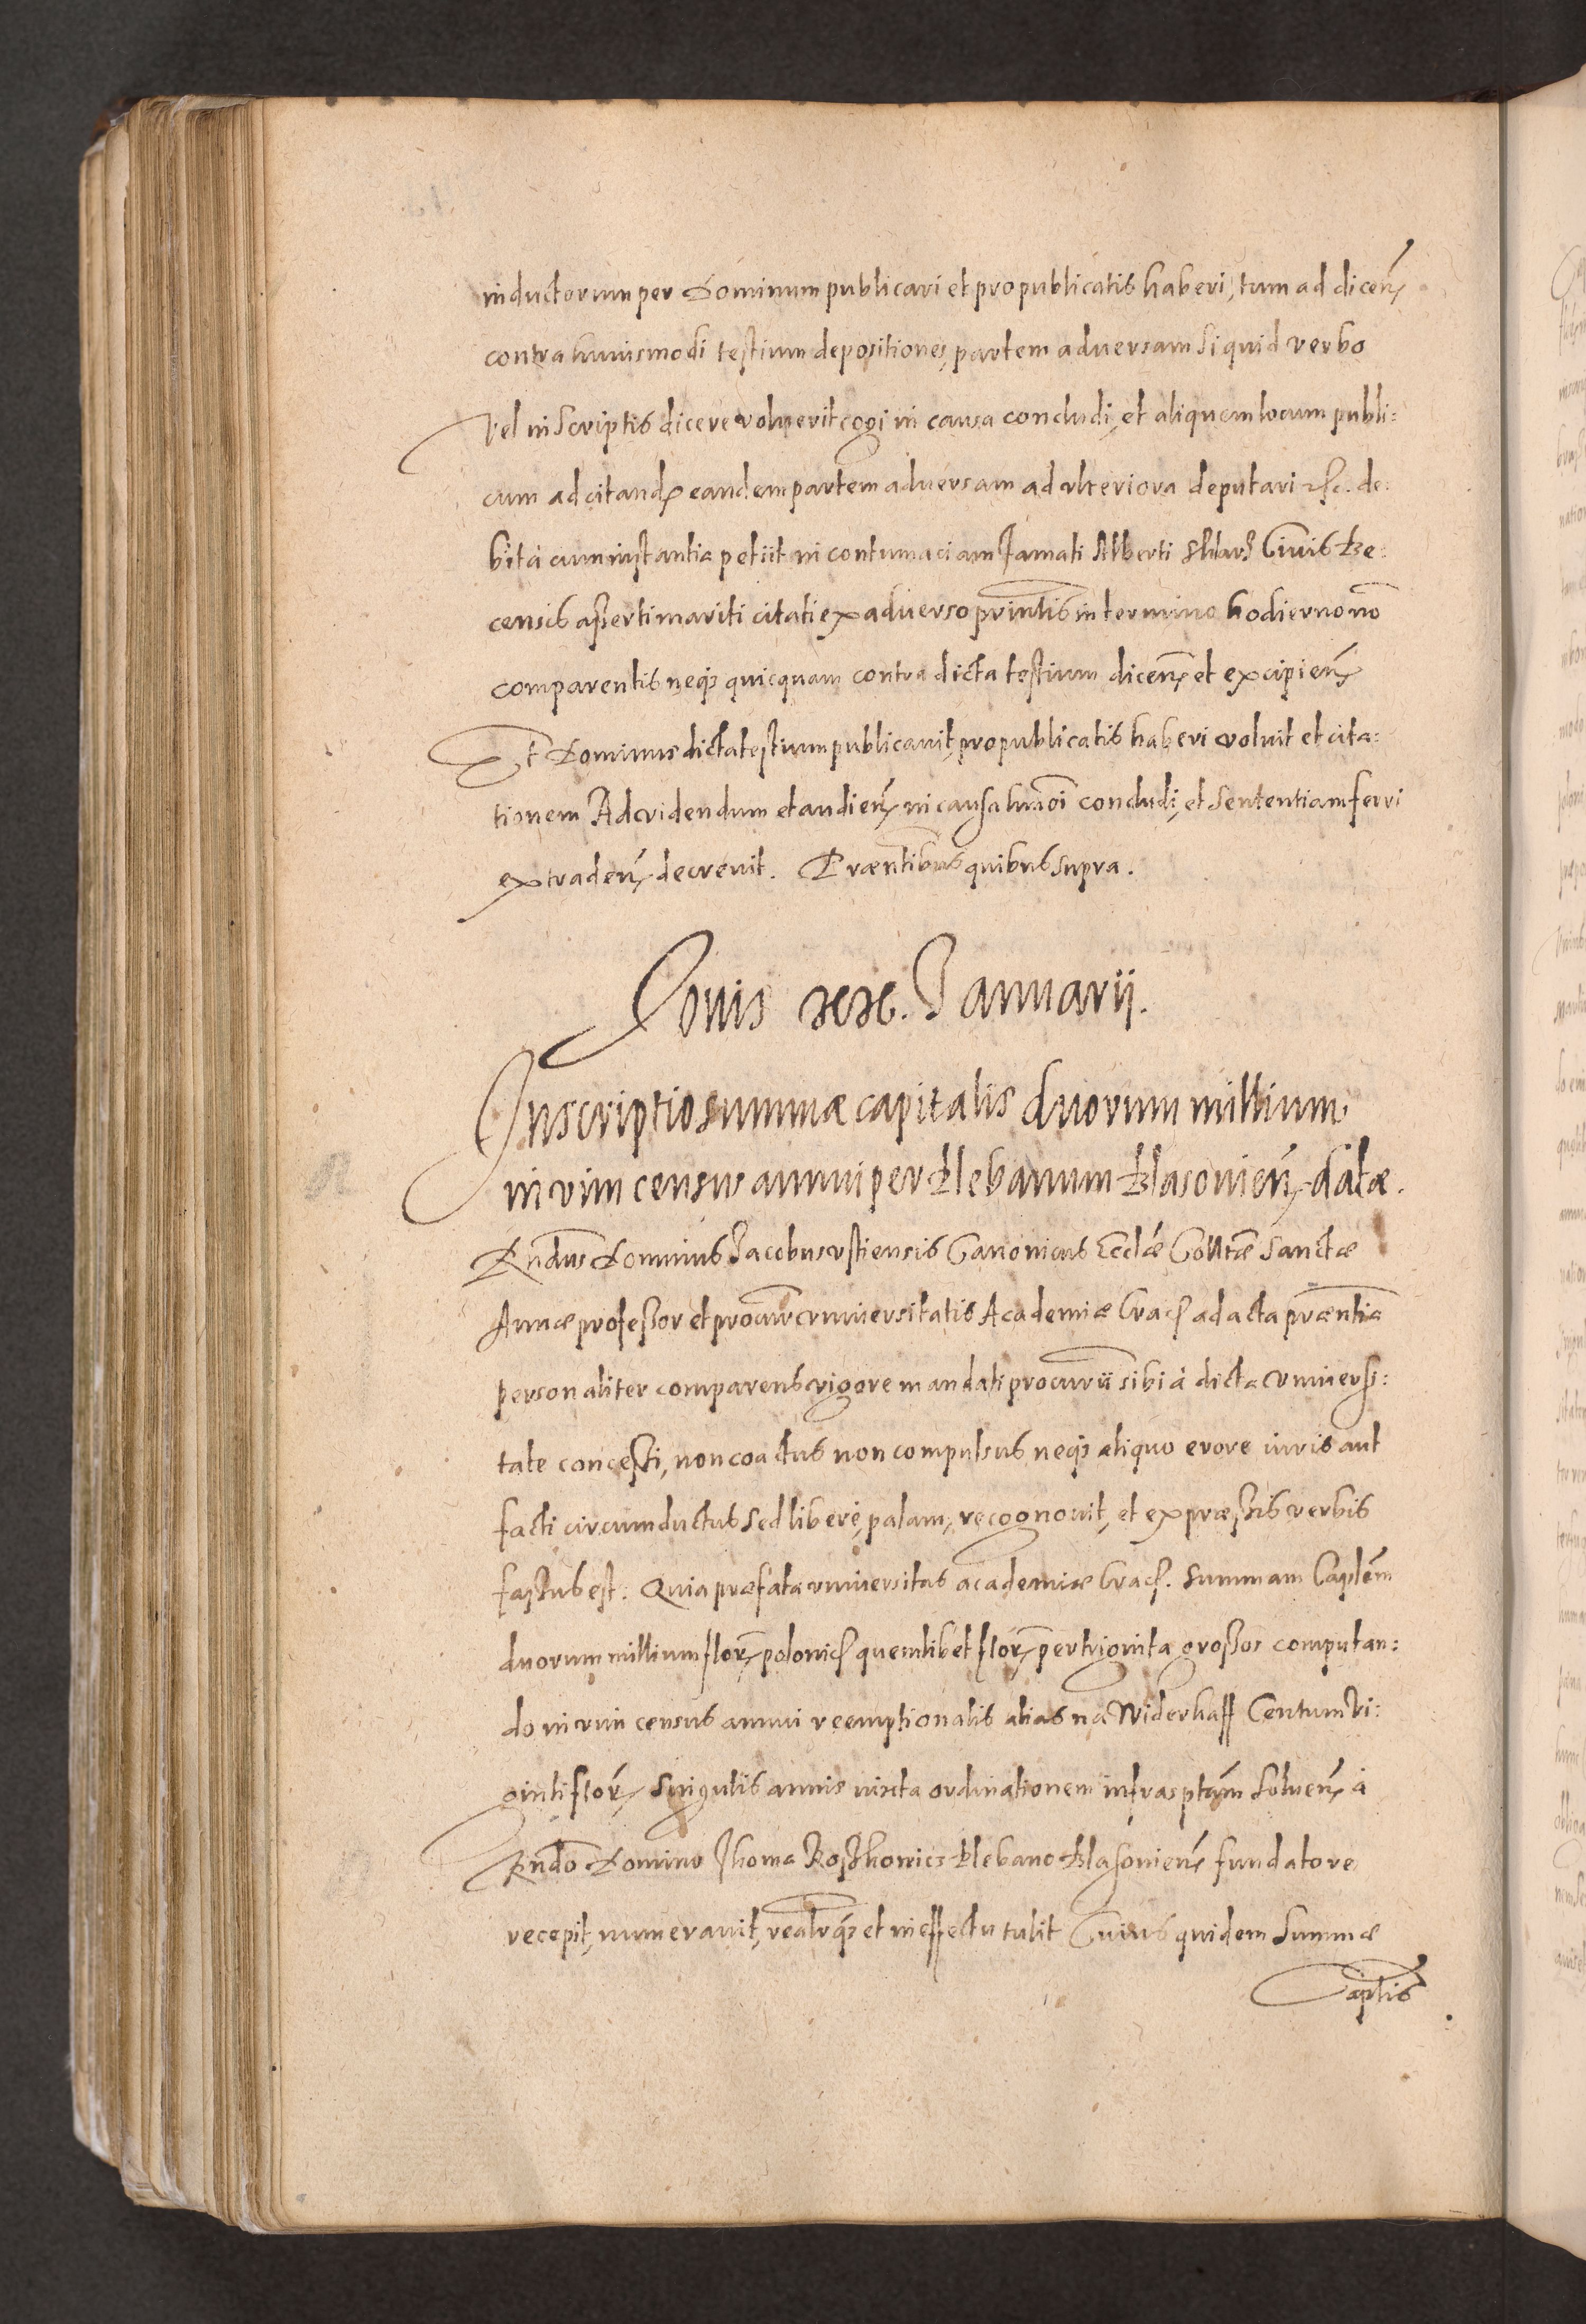 inductorum per Dominum publicari et pro publicatis haberi, tum ad dicen̄
contra huiusmodi testium depositiones, partem adversam si quid verbo
Vel in scriptis dicere voluerit cogi in causa concludi, et aliquem locum publi:
cum ad citand eandem partem adversam ad ulteriora deputari etc. de:
bita cum instantia petiit in contumaciam Famati Alberti Civis
censis asserti mariti citati ex adverso prīntis in termino hodierno nō
comparentis neqȝ quicquam contra dicta testium dicen̄ et excipien̄
Et Dominus dicta testium publicavit, pro publicatis haberi voluit et cita:
tionem Ad videndum et audien̄ in causa hmōi concludi, et Sententiam ferri
extraden̄ decrevit. Præntibus quibus supra.
Jovis xx. Januarii.
Inscriptio summæ capitalis duorum millium
in vim census annui per Plebanum Plasovien̄ datæ.
Rndus Dominus Jacobus ustiensis Canonicus Eccliæ Colltæ Sanctæ
Annæ professor et procūr universitatis Academiæ Crac ad acta præntia
personaliter comparens vigore mandati procurii sibi à dicta universi:
tate concessi, non coactus non compulsus neqȝ aliquo erore iuris aut
facti circumductus sed liberè, palam, recognovit, et expræssis verbis
fassus est: Quia præfata universitas academiæ Crac. Summam Caplem
duorum millium flor̄ polonic quemlibet flor̄ per triginta grossos computan:
do in vim census annui reemptionalis alias na Widerkaff Centum Vi:
ginti flor̄ Singulis annis iuxta ordinationem infrasptam Solven̄ à
Rndo Domino Thoma Plebano Plasovien̄ fundatore
recepit, numeravit, realrqȝ et in effectu tulit Cuius quidem Summæ
Caplis